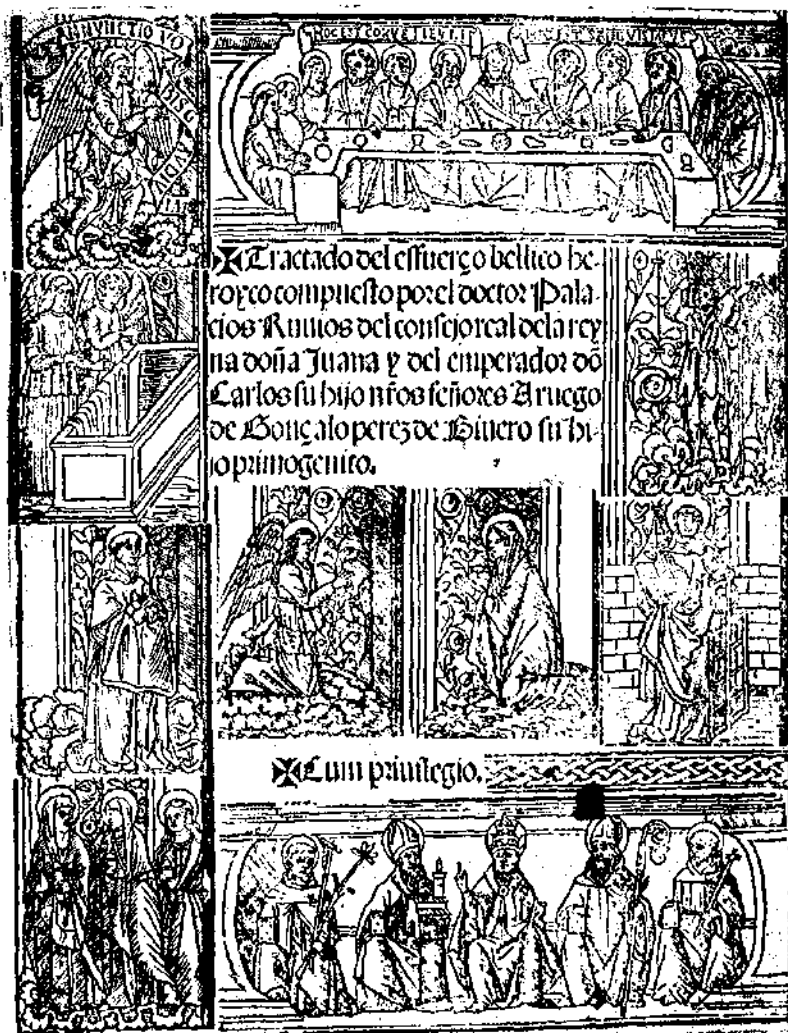 ANNVNCTIO VO
BISG
HOC EST CORV
✠ Tractado del effuerço bellico he-
royco compuesto por el doctor Pala-
cios Ruuios del consejo real dela rey
na doña Juana y del emperador dõ
Carlos su hijo nr̃os señores A ruego
de Gonçalo perez de Biuero su hi-
jo primogenito.
✠ Cum priuilegio.